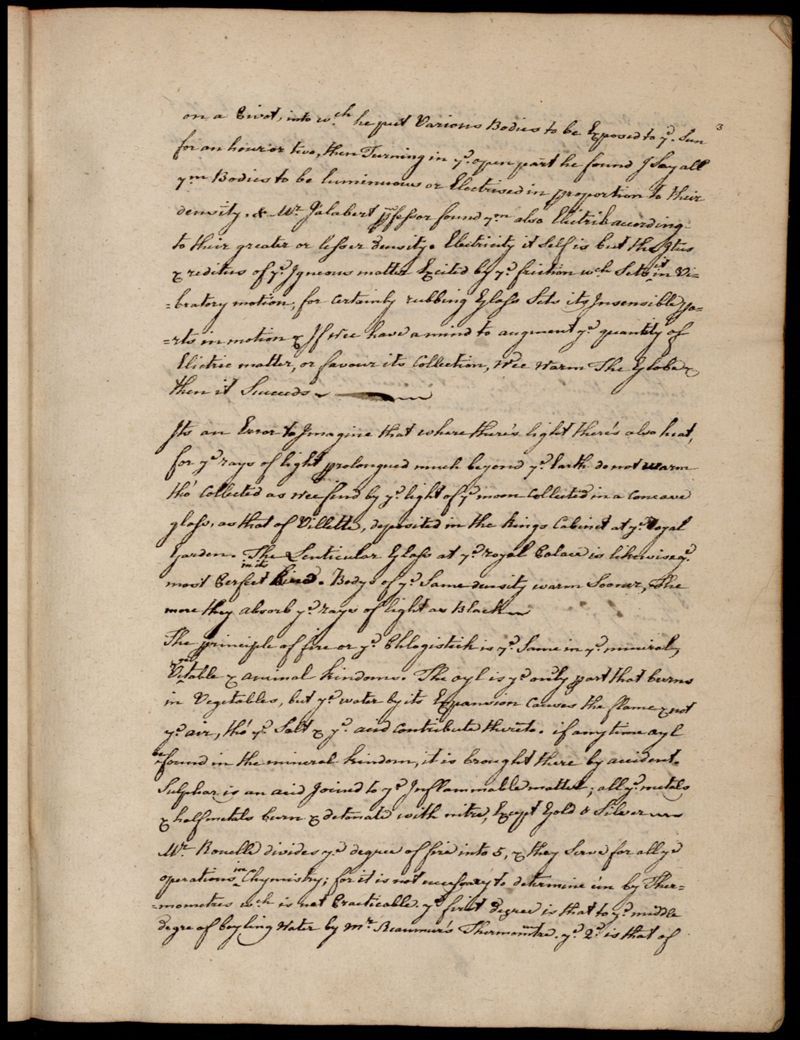 3
on a Pivot, into wch. he put Various Bodies to be Exposed to ye. Sun
for an hour or two, then Turning in ye. open part he found I Say all
ym Bodies to be luminous or Electrised in proportion to their
density. & Mr. Jalabert pfessor found ym also Electrik according
to their greater or lesser Density. Electricity it Self is but the
& reditus of ye. Igneous matter Excited by ye. friction wch Sets it in Vi=
=bratory motion, for Certainly rubbing Glass Sets its Insensible pa=
=rts in motion & If Wee have a mind to augment ye. quantity of
Elictric matter, or favour its Collection, Wee Warm The Globe &
then it Succeeds
Its an Error to Imagine that where there's light there's also heat,
for ye. rays of light prolongued much beyond ye. Earth do not warm
tho' Collected as Wee find by ye. light of ye. moon Collected in a Concave
glass, as that of Villette, deposited in the kings Cabinet at ye. royal
Garden. The Lenticular Glass at ye. royal Palace is likewise ye.
most Perfect in its kind. Bodys of ye. Same density warm Sooner, The
more they absorb ye. rays of light as Black
The principle of fire or ye. Phlogistick is ye. Same in ye. mineral,
Vegetable & animal kindoms. The oyl is ye. only part that burns
in Vegetables, but ye. water by its Expansion Causes the flame & not
ye. air, tho' ye. Salt & ye. acid Contribute thereto. if any time oyl
be found in the mineral kindom, it is brought there by accident.
Sulphur is an acid Joined to ye. Inflammable matter; all ye. metals
& halfmetals burn & detonate with nitre, Except Gold & Silver
Mr. Rouelle divides ye. degree of fire into 5, & they Serve for all ye
operations in Chymistry; for it is not necessary to determine 'em by Ther=
=mometres wch. is not Practicable. ye. first Degree is that to ye. middle
degre of boyling Water by Mr. Reaumur's Thermometre. ye. 2d. is that of